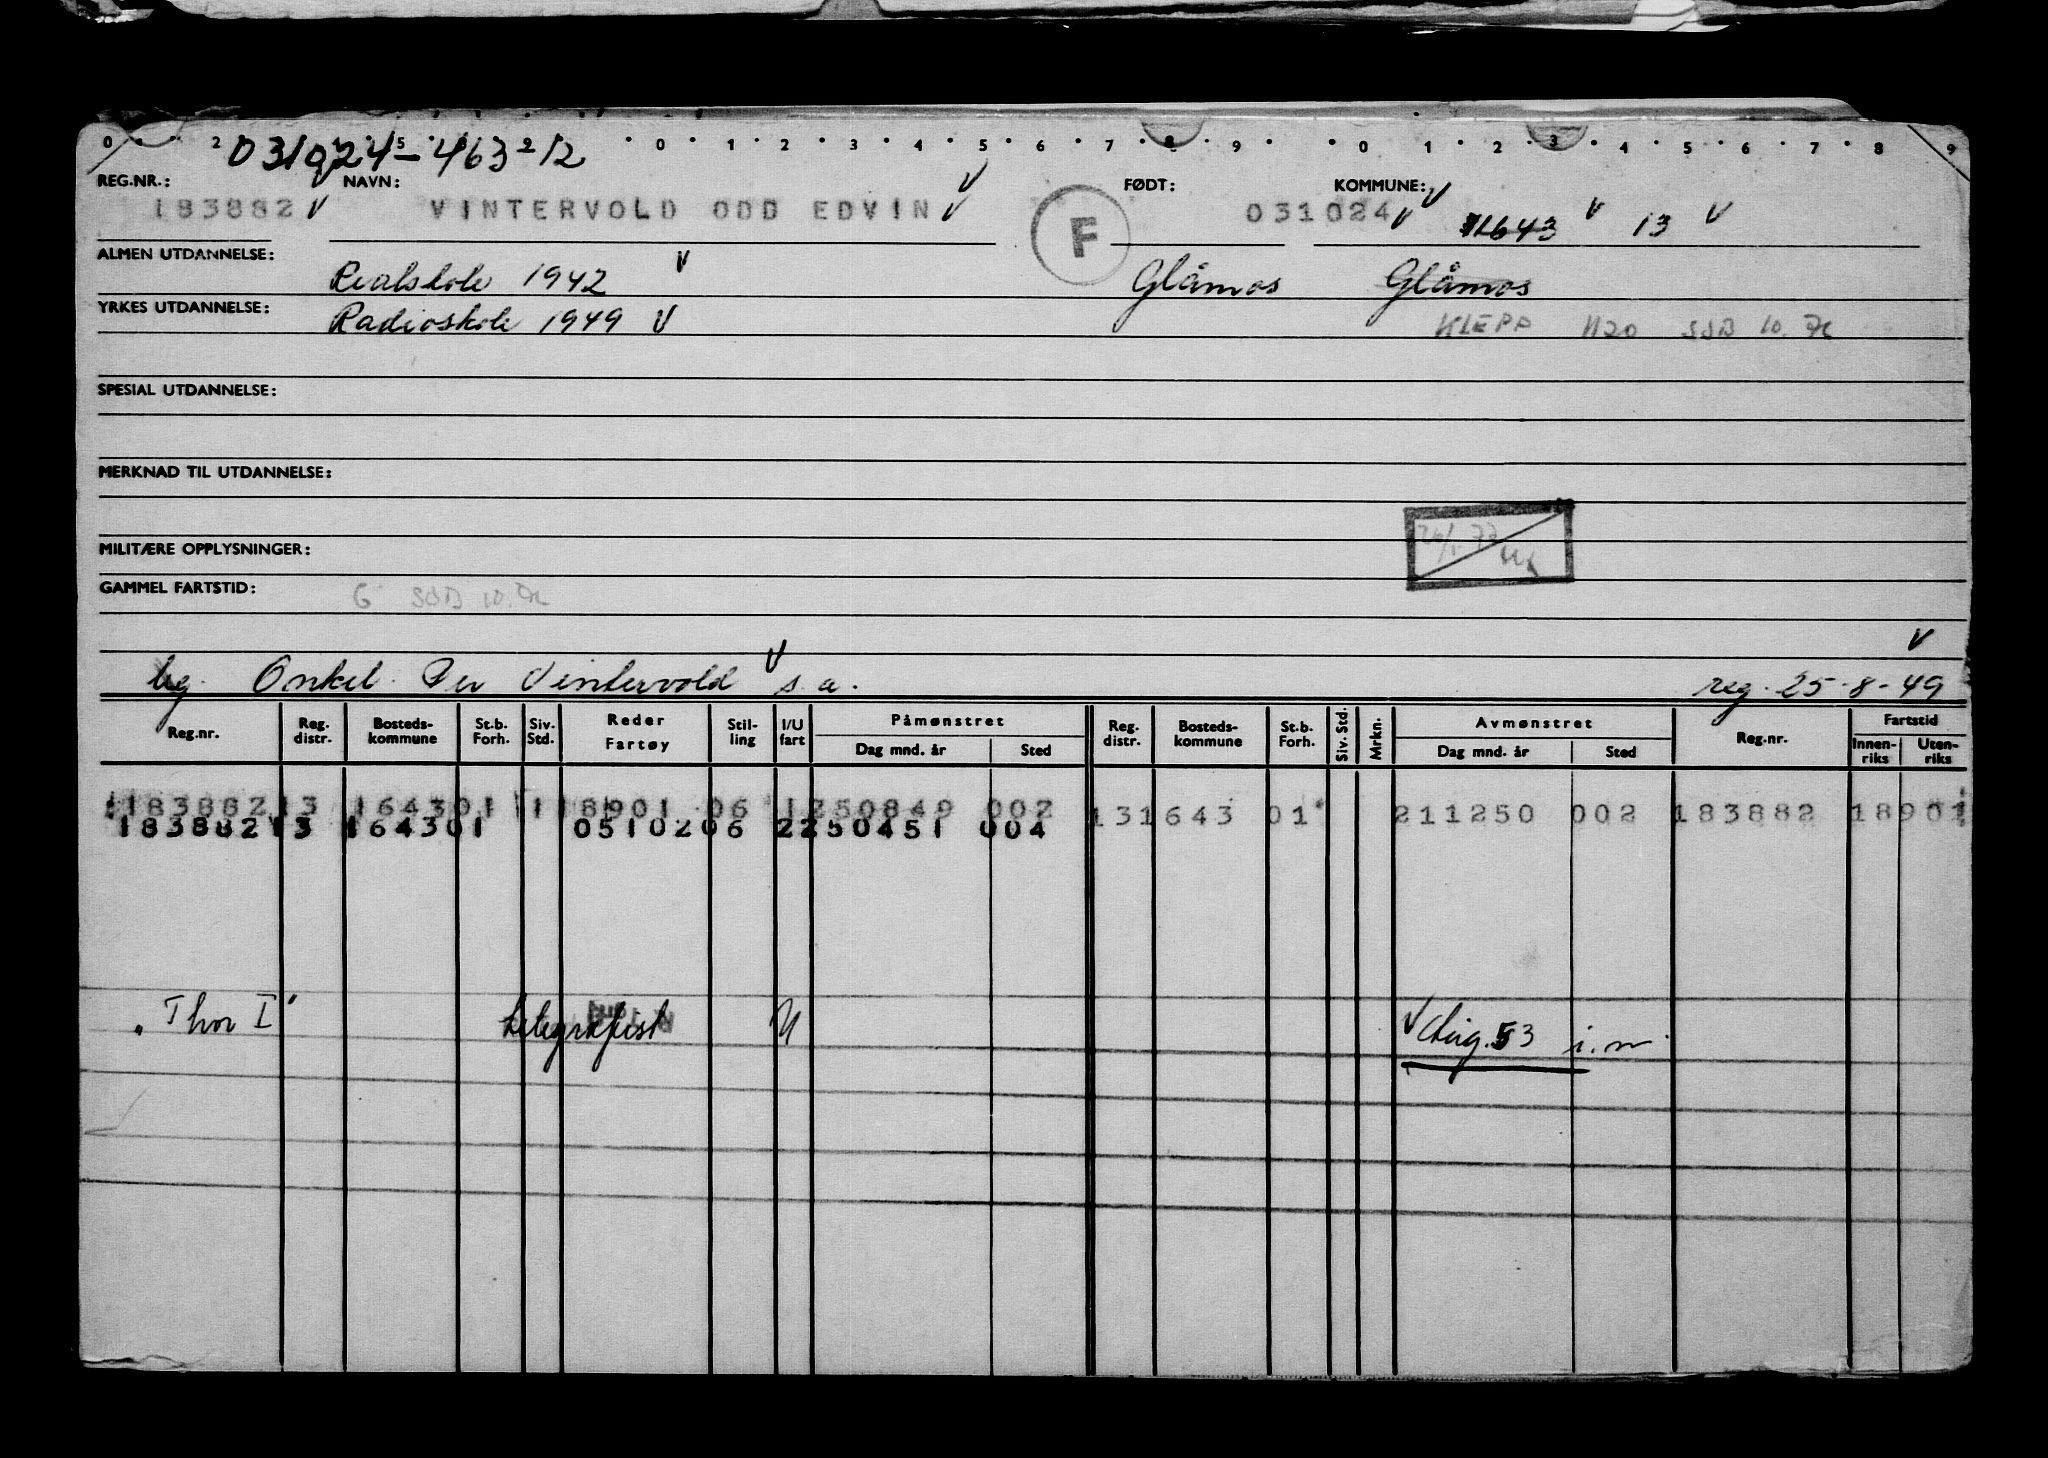 0 2 5 0 1 2 3 4 5 6 7 8 9 0 1 2 3 4 5 6 7 8 9
031024-46312
REG.NR.: NAVN: FØDT: KOMMUNE:
183882 V VINTERVOLD ODD EDVIN V F 031024 V 1643 V 13 V
ALMEN UTDANNELSE: Realskole 1942 V Glåmos Glåmos
YRKES UTDANNELSE: Radioskole 1949 V KLEPP 1120 SSB 10.
SPESIAL UTDANNELSE:
MERKNAD TIL UTDANNELSE:
MILITÆRE OPPLYSNINGER:
GAMMEL FARTSTID: G SSB 10.
Onkel Per Vintervold V s.a. reg. 25-8-49 V
Reg.nr. Reg. distr. Bosteds-kommune St.b. Forh. Siv. Std. Reder Fartøy Stil-ling I/U fart Påmønstret Dag mnd. år Sted Reg. distr. Bosteds-kommune St.b. Forh. Siv. Std. Mrkn. Avmønstret Dag mnd. år Sted Reg.nr. Fartstid Innen-riks Uten-riks
183882 13 1643 01 1 18901 06 1 250849 002 13 1643 01 211250 002 183882 18901
183882 13 1643 01 05102 06 2 250451 004
"Thor I" telegrafist U V Aug. 53 i.m.